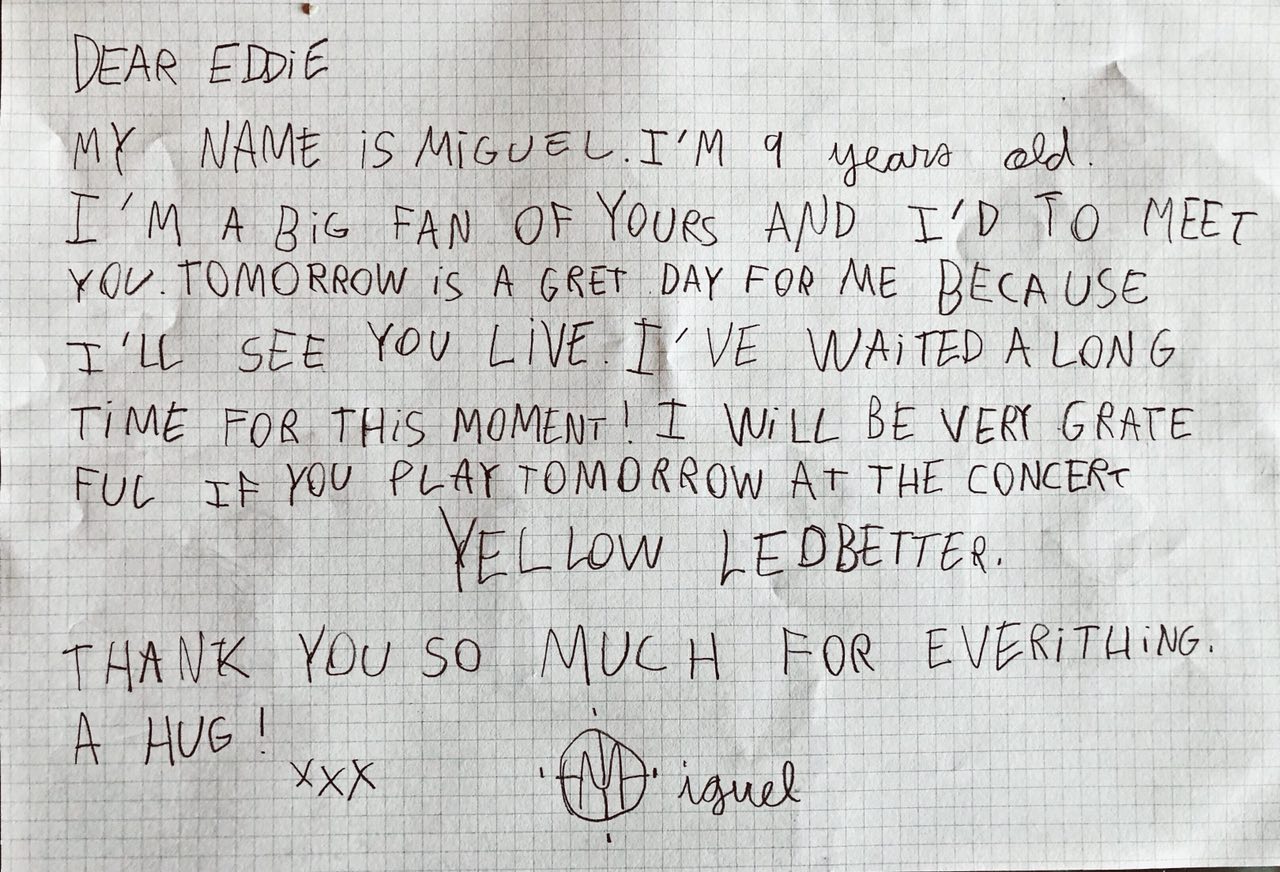 DEAR EDDiE
MY NAME iS MiGUEL. I'M 9 years old.
I'M A BiG FAN OF YOURS AND I'D TO MEET
YOU. TOMORROW iS A GRET DAY FOR ME BECAUSE
I'LL SEE YOU LiVE. I'VE WAiTED A LONG
TiME FOR THiS MOMENT! I WiLL BE VERY GRATE
FUL IF YOU PLAY TOMORROW AT THE CONCERT
YELLOW LEDBETTER.
THANK YOU SO MUCH FOR EVERiTHiNG.
A HUG!
XXX
Miguel